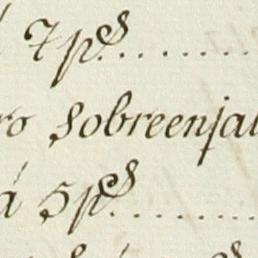 7 p.s
ro Sobreenjal
á 5 p.s